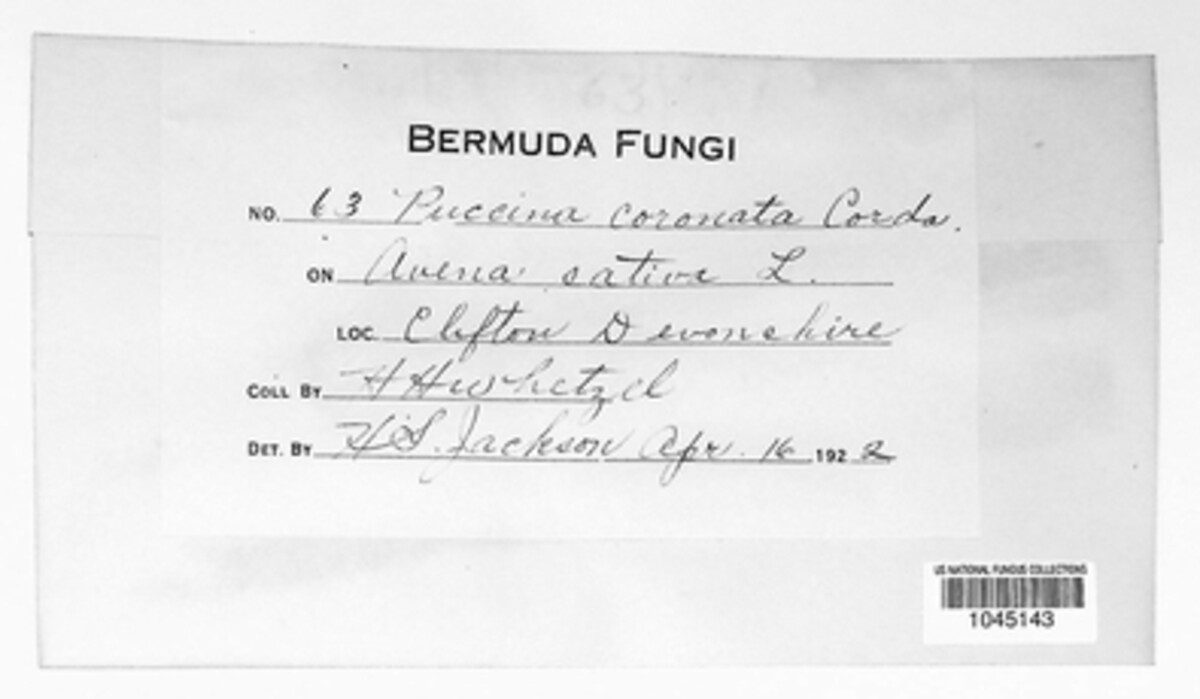 BERMUDA FUNGI
NO. 63 Puccina coronata Corda.
ON Avena sativa L.
LOC. Clifton Devonshire
COLL BY H H Whetzel
DET. BY H.S. Jackson Apr. 16 1922
US NATIONAL FUNGUS COLLECTIONS
1045143